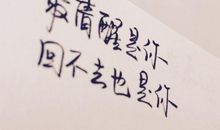 清醒是你
回不去也是你